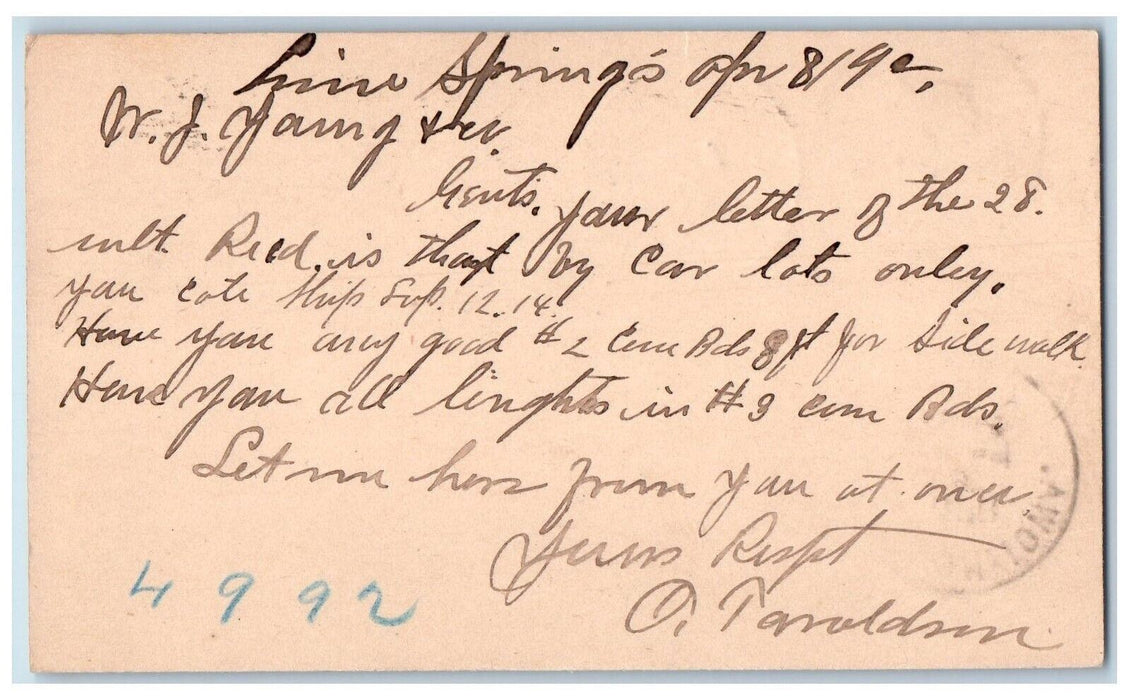 Lime Spring's Apr 8/9
W. J. Young & Co.
Gents. your letter of the 28.
ult. Recd. is that by Car lots onley.
you cote Ship Lap. 12.14.
Have you any good #2 Com Bds 8 ft for Side walk
Have you all linghts in #3 com Bds.
Let me here from you at once.
Yours Respt
O. Taroldson
4992